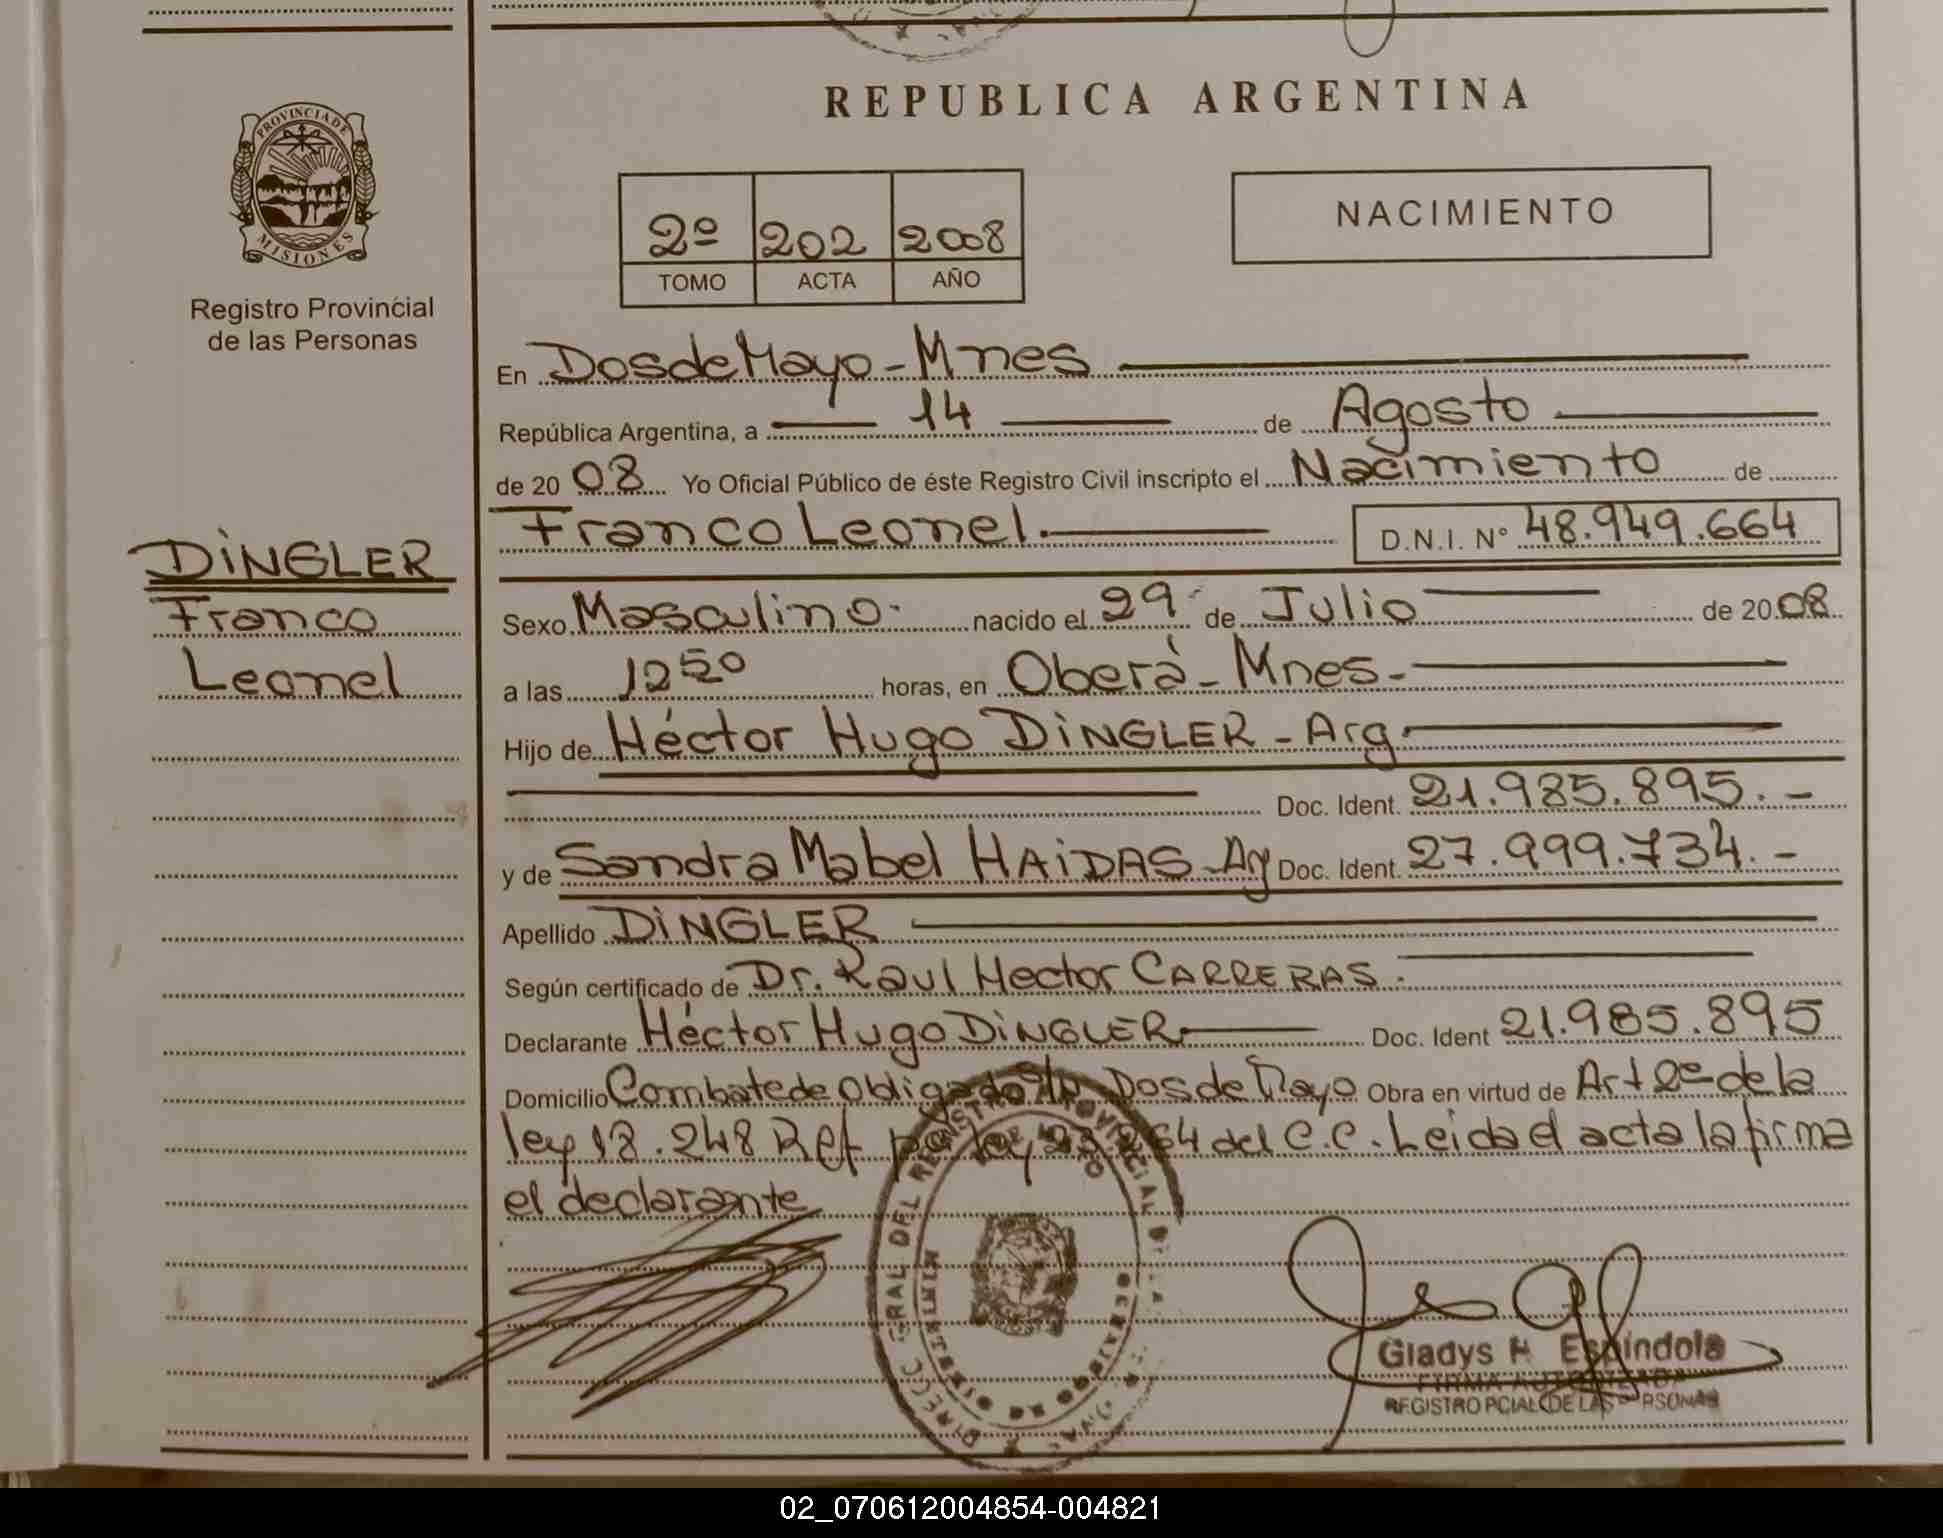 REPUBLICA ARGENTINA
PROVINCIA DE
MISIONES
Registro Provincial
de las Personas
2º 202 2008
TOMO ACTA AÑO
NACIMIENTO
DINGLER
Franco
Leonel
En Dos de Mayo - Mnes
República Argentina, a 14 de Agosto
de 20 08 Yo Oficial Público de éste Registro Civil inscripto el Nacimiento de
Franco Leonel. D.N.I. Nº 48.949.664
Sexo Masculino nacido el 29 de Julio de 20 08
a las 12 50 horas, en Oberá - Mnes -
Hijo de Héctor Hugo DINGLER - Arg
Doc. Ident. 21.985.895. -
y de Sandra Mabel HAIDAS - Arg Doc. Ident. 27.999.734. -
Apellido DINGLER
Según certificado de Dr. Raul Hector CARRERAS.
Declarante Héctor Hugo DINGLER Doc. Ident 21.985.895
Domicilio Combate de Obligado Dos de Mayo Obra en virtud de Art de la
ley 18.248 Ref por ley 23.264 del C.C. Leida el acta la firma
el declarante
DIRECC. GRAL DEL REGISTRO PROVINCIAL DE
DOS DE MAYO
Gladys H. Espindola
FIRMA AUTORIZADA
REGISTRO PCIAL DE LAS PERSONAS
02_070612004854-004821